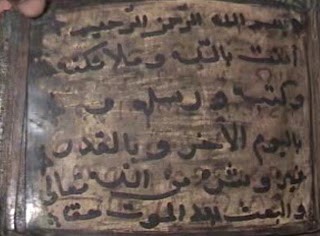 بسم الله الرحمن الرحيم
آمنت بالله وملائكته
وكتبه ورسله و
باليوم الآخر وبالقدر
خيره وشره من الله تعالى
والبعث بعد الموت حق